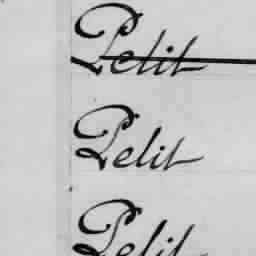 Petit
Petit
Petit